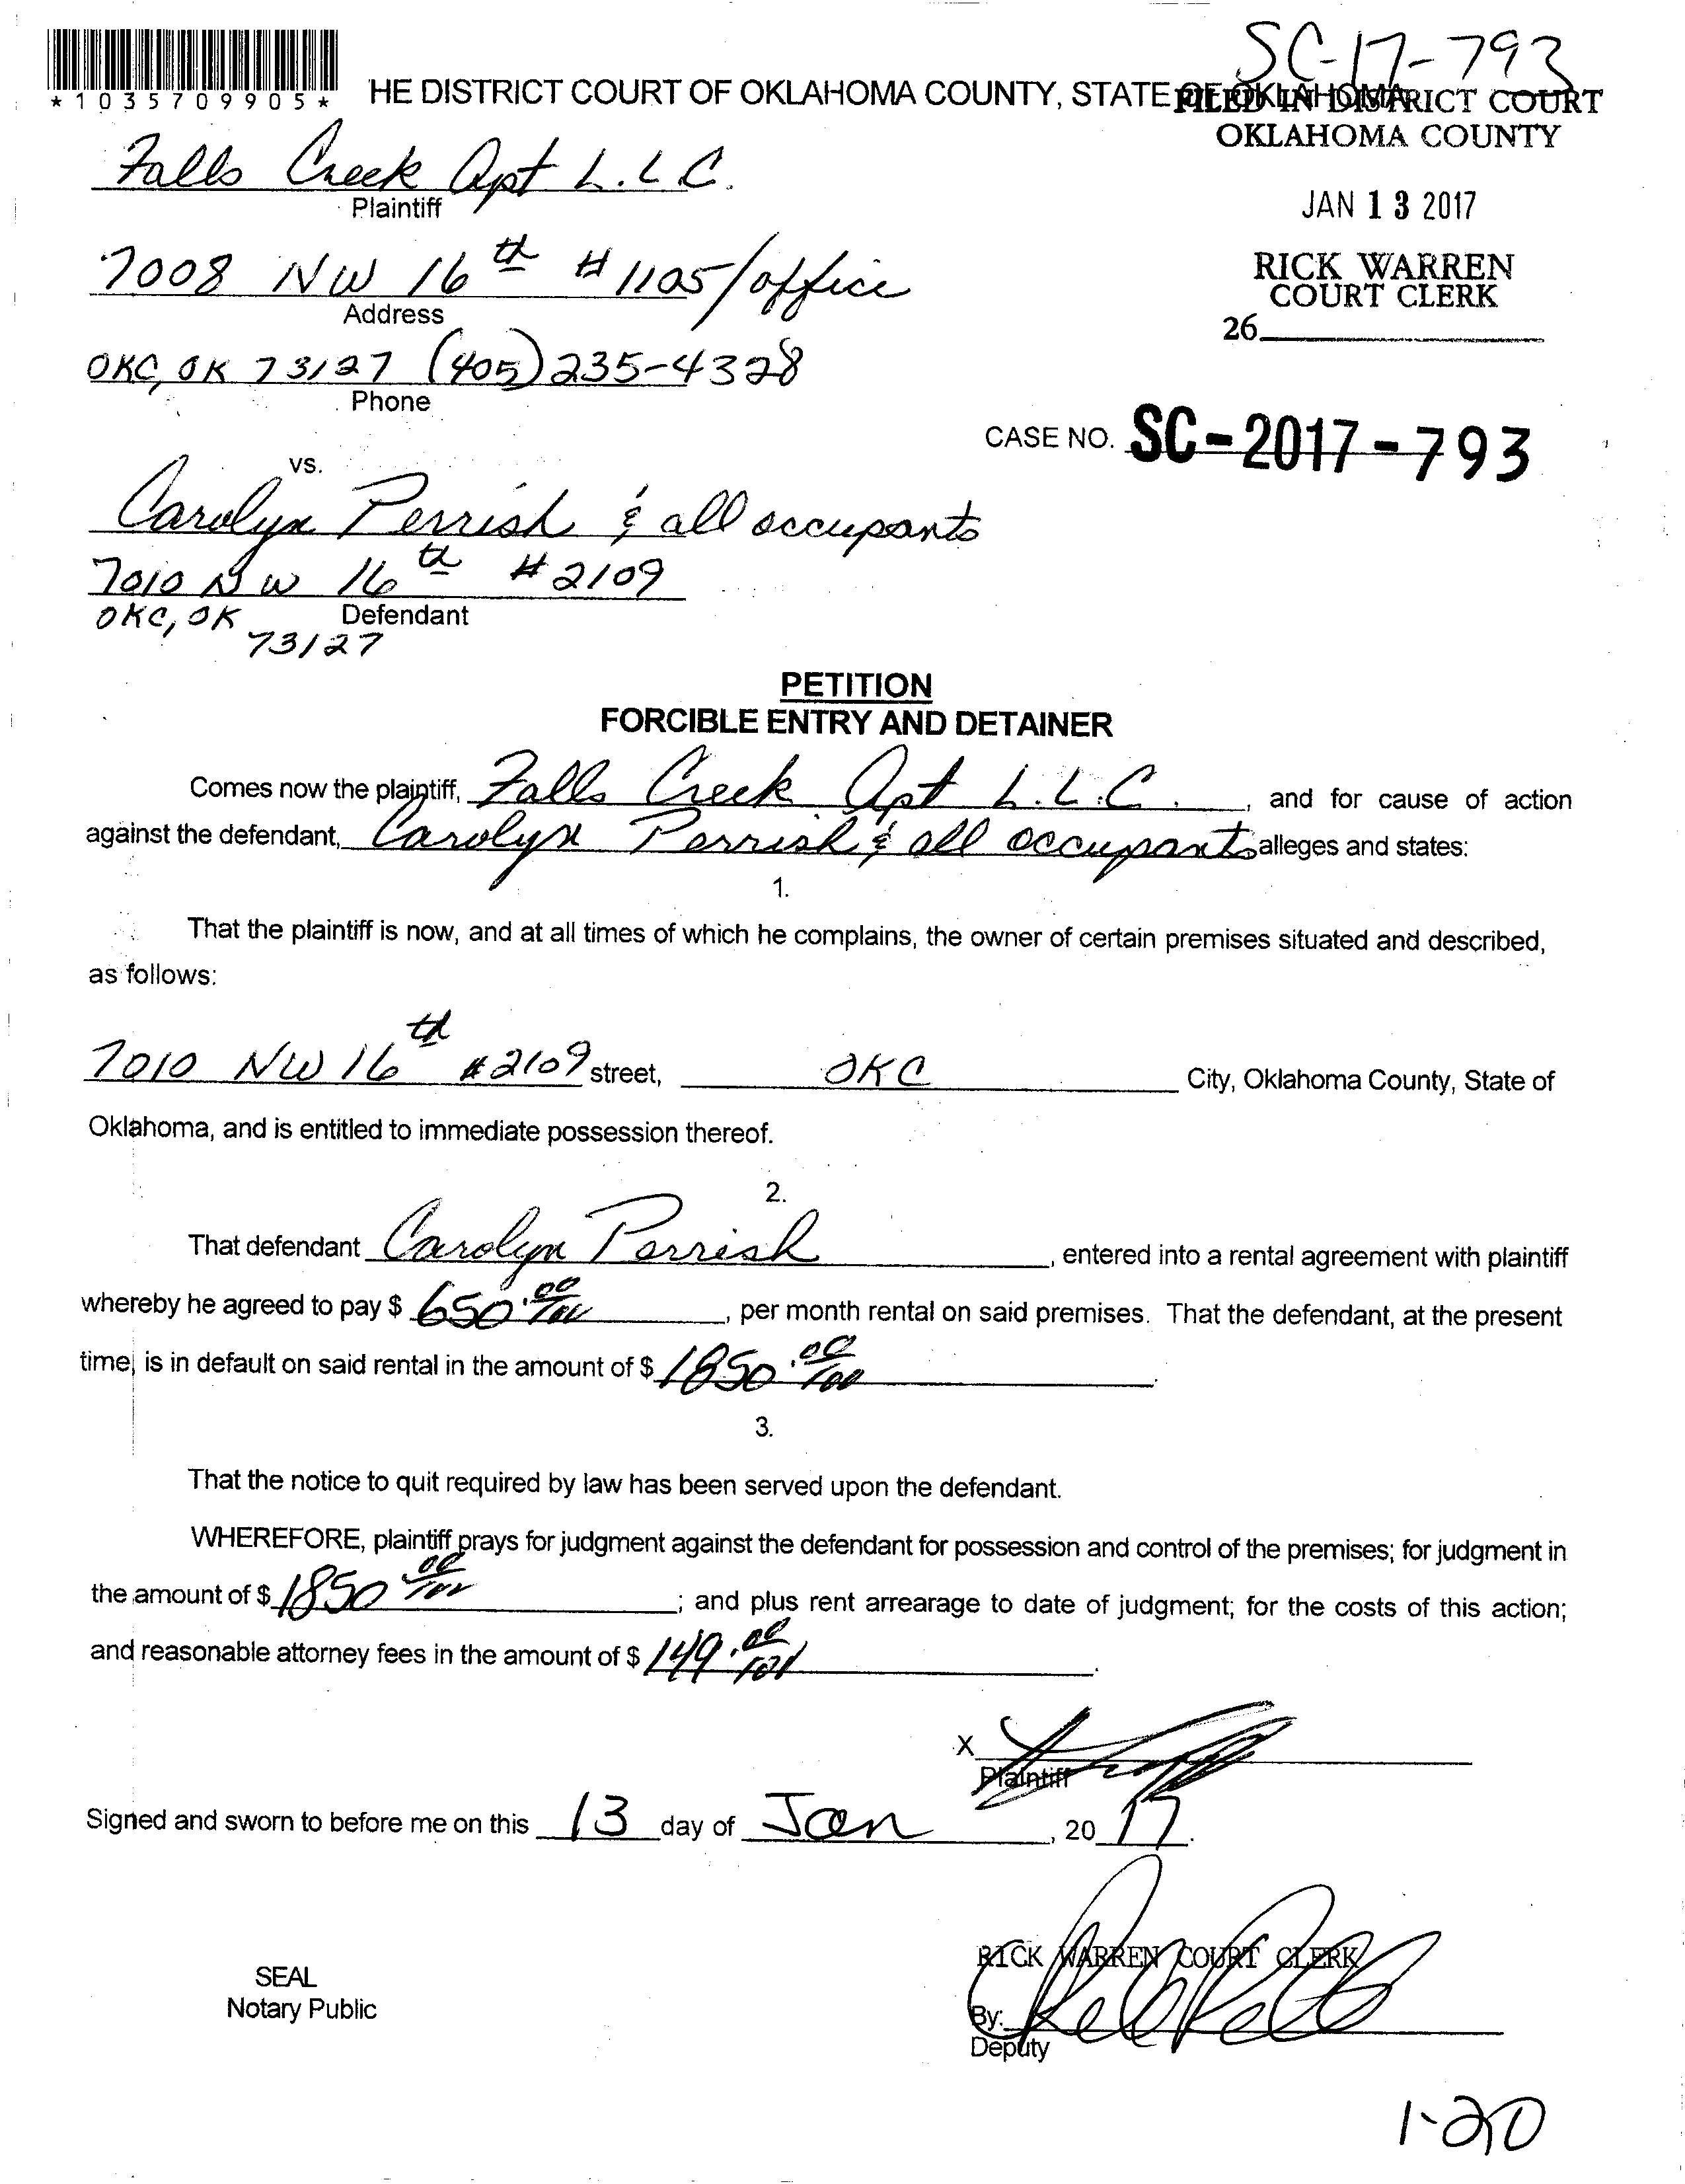 SC-17-793
*1035709905*
HE DISTRICT COURT OF OKLAHOMA COUNTY, STATE OF OKLAHOMA
FILED IN DISTRICT COURT
OKLAHOMA COUNTY
Falls Creek Apt L.L.C.
Plaintiff
JAN 13 2017
7008 NW 16th # 1105/office
Address
RICK WARREN
COURT CLERK
26
OKC, OK 73127 (405) 235-4328
Phone
CASE NO. SC-2017-793
vs.
Carolyn Perrish & all occupants
7010 NW 16th # 2109
OKC, OK Defendant
73127
PETITION
FORCIBLE ENTRY AND DETAINER
Comes now the plaintiff, Falls Creek Apt L.L.C. , and for cause of action
against the defendant, Carolyn Perrish & all occupants alleges and states:
1.
That the plaintiff is now, and at all times of which he complains, the owner of certain premises situated and described,
as follows:
7010 NW 16th #2109 street, OKC City, Oklahoma County, State of
Oklahoma, and is entitled to immediate possession thereof.
2.
That defendant Carolyn Perrish , entered into a rental agreement with plaintiff
whereby he agreed to pay $ 650.00/100 , per month rental on said premises. That the defendant, at the present
time, is in default on said rental in the amount of $ 1850.00/100 .
3.
That the notice to quit required by law has been served upon the defendant.
WHEREFORE, plaintiff prays for judgment against the defendant for possession and control of the premises; for judgment in
the amount of $ 1850 00/100 ; and plus rent arrearage to date of judgment; for the costs of this action;
and reasonable attorney fees in the amount of $ 149.00/100 .
X
Plaintiff
Signed and sworn to before me on this 13 day of Jan , 20 17.
RICK WARREN COURT CLERK
SEAL
Notary Public
By:
Deputy
1-20